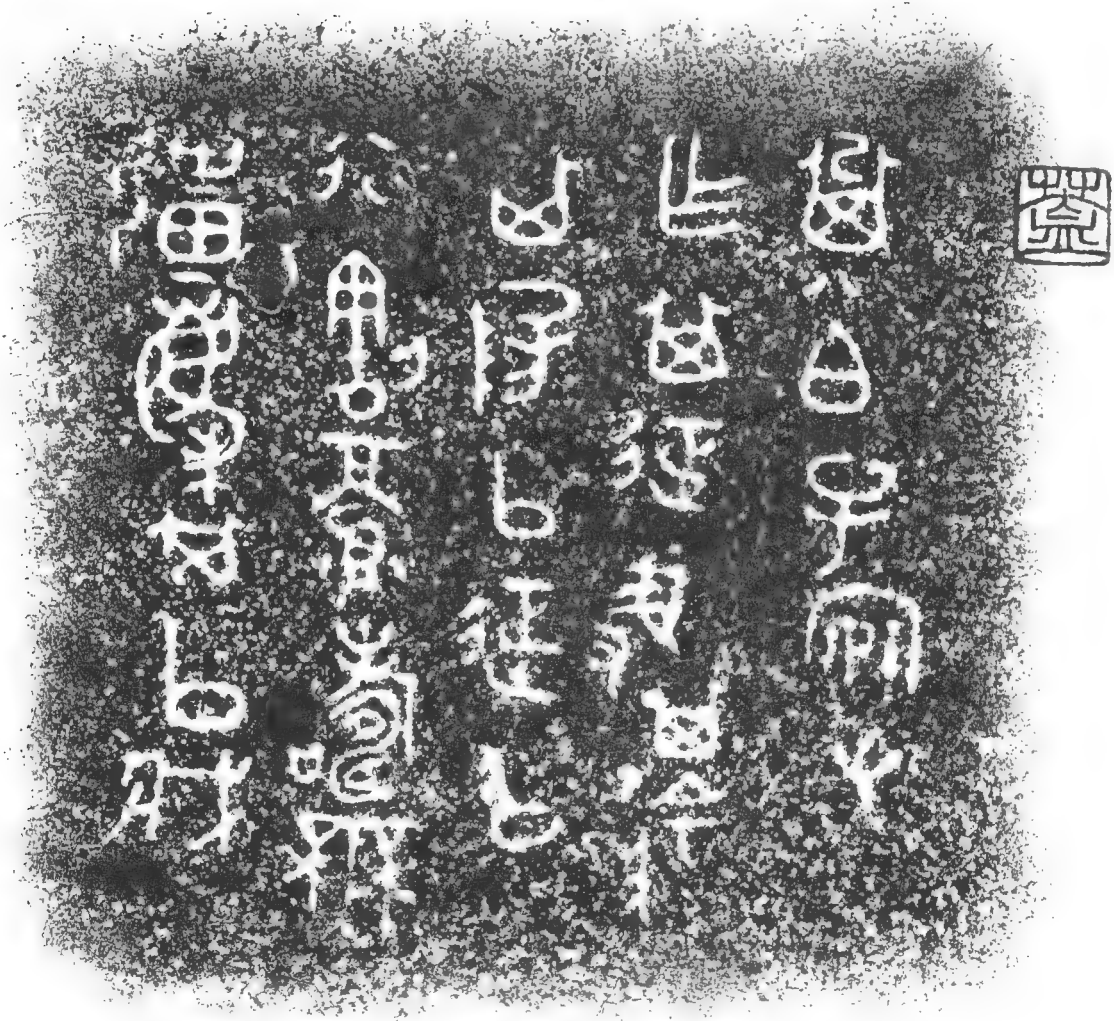 㠱白子㝨父
乍其征盨其陰
其陽以征以
行割眉壽無
疆慶其以臧